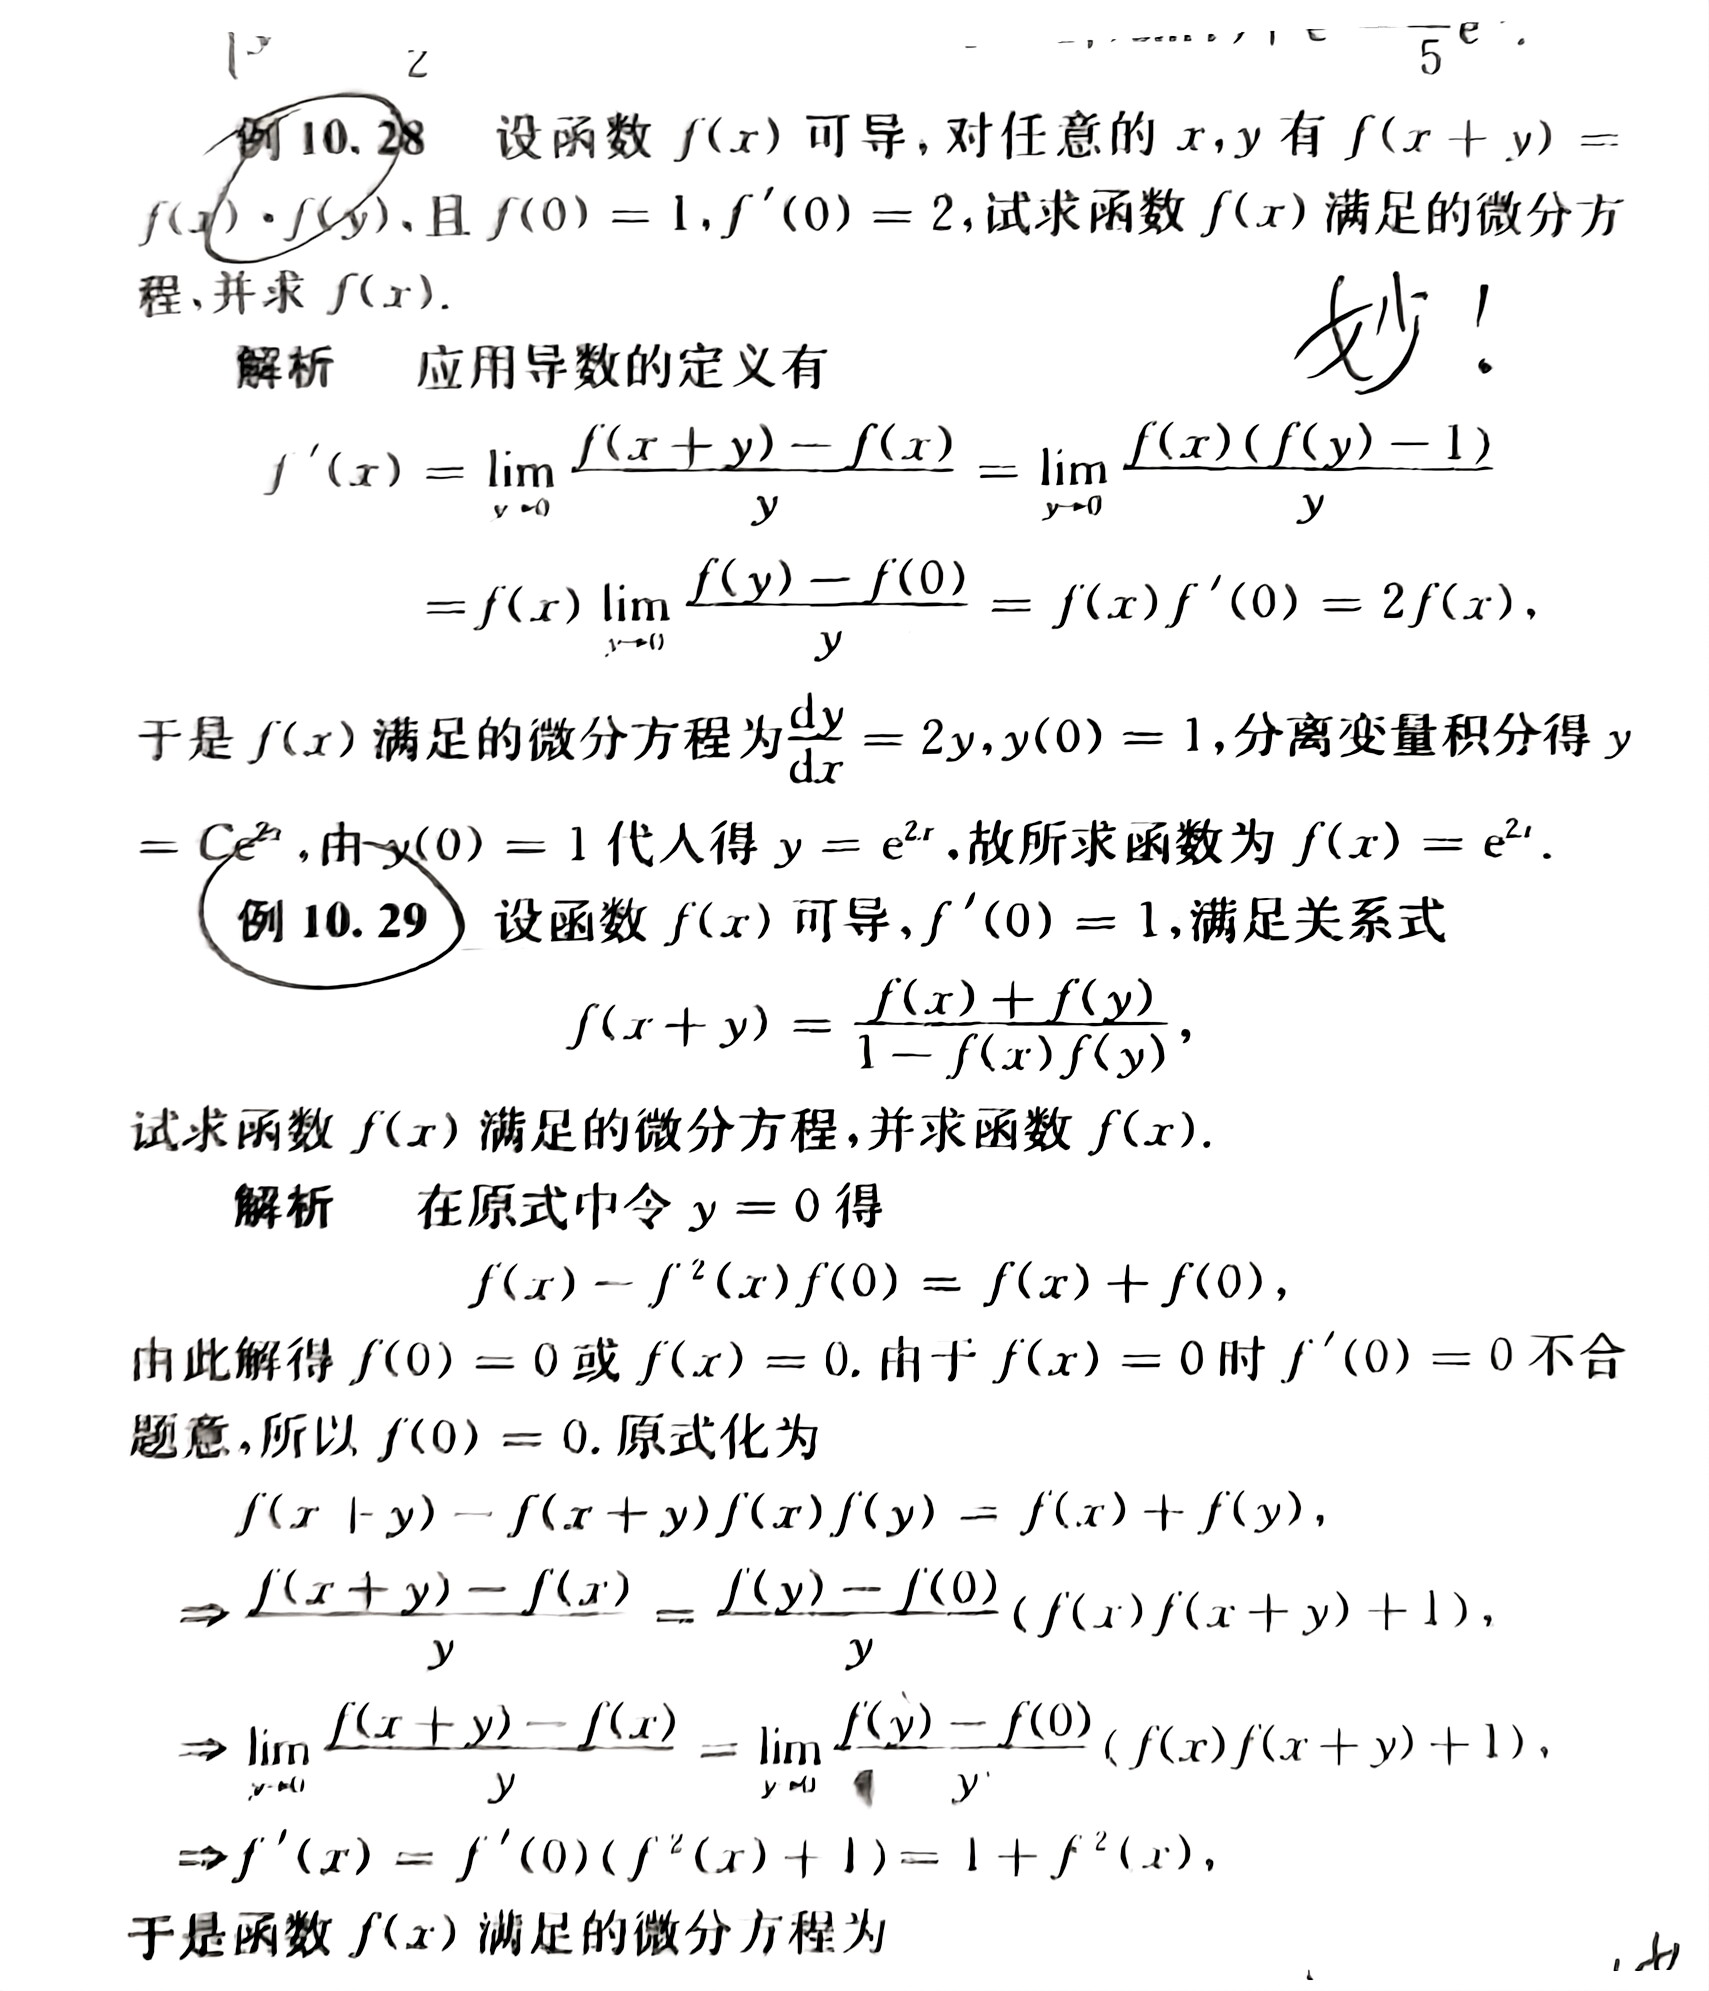 5 e
例 10.28 设函数 f(x) 可导,对任意的 x,y 有 f(x + y) =
f(x)·f(y),且 f(0) = 1,f′(0) = 2,试求函数 f(x) 满足的微分方
程,并求 f(x).
妙!
解析 应用导数的定义有
f′(x) = lim_{y→0} \frac{f(x + y) − f(x)}{y} = lim_{y→0} \frac{f(x)(f(y) − 1)}{y}
= f(x) lim_{y→0} \frac{f(y) − f(0)}{y} = f(x)f′(0) = 2f(x),
于是 f(x) 满足的微分方程为 \frac{dy}{dx} = 2y,y(0) = 1,分离变量积分得 y
= Ce^{2x},由 y(0) = 1 代人得 y = e^{2x},故所求函数为 f(x) = e^{2x}.
例 10.29 设函数 f(x) 可导,f′(0) = 1,满足关系式
f(x + y) = \frac{f(x) + f(y)}{1 − f(x)f(y)},
试求函数 f(x) 满足的微分方程,并求函数 f(x).
解析 在原式中令 y = 0 得
f(x) − f²(x)f(0) = f(x) + f(0),
由此解得 f(0) = 0 或 f(x) = 0. 由于 f(x) = 0 时 f′(0) = 0 不合
题意,所以 f(0) = 0. 原式化为
f(x + y) − f(x + y)f(x)f(y) = f(x) + f(y),
⇒ \frac{f(x + y) − f(x)}{y} = \frac{f(y) − f(0)}{y} (f(x)f(x + y) + 1),
⇒ lim_{y→0} \frac{f(x + y) − f(x)}{y} = lim_{y→0} \frac{f(y) − f(0)}{y} (f(x)f(x + y) + 1),
⇒ f′(x) = f′(0)(f²(x) + 1) = 1 + f²(x),
于是函数 f(x) 满足的微分方程为